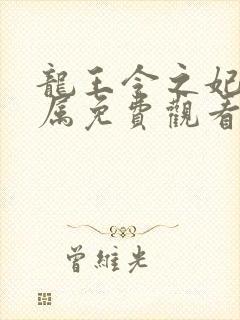 龍王令之妃
属免費觀看
曾維光